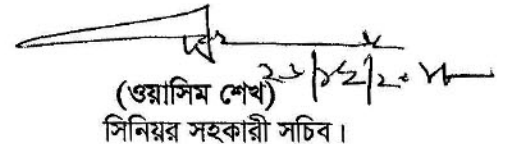 (ওয়াসিম শেখ)
সিনিয়র সহকারী সচিব।